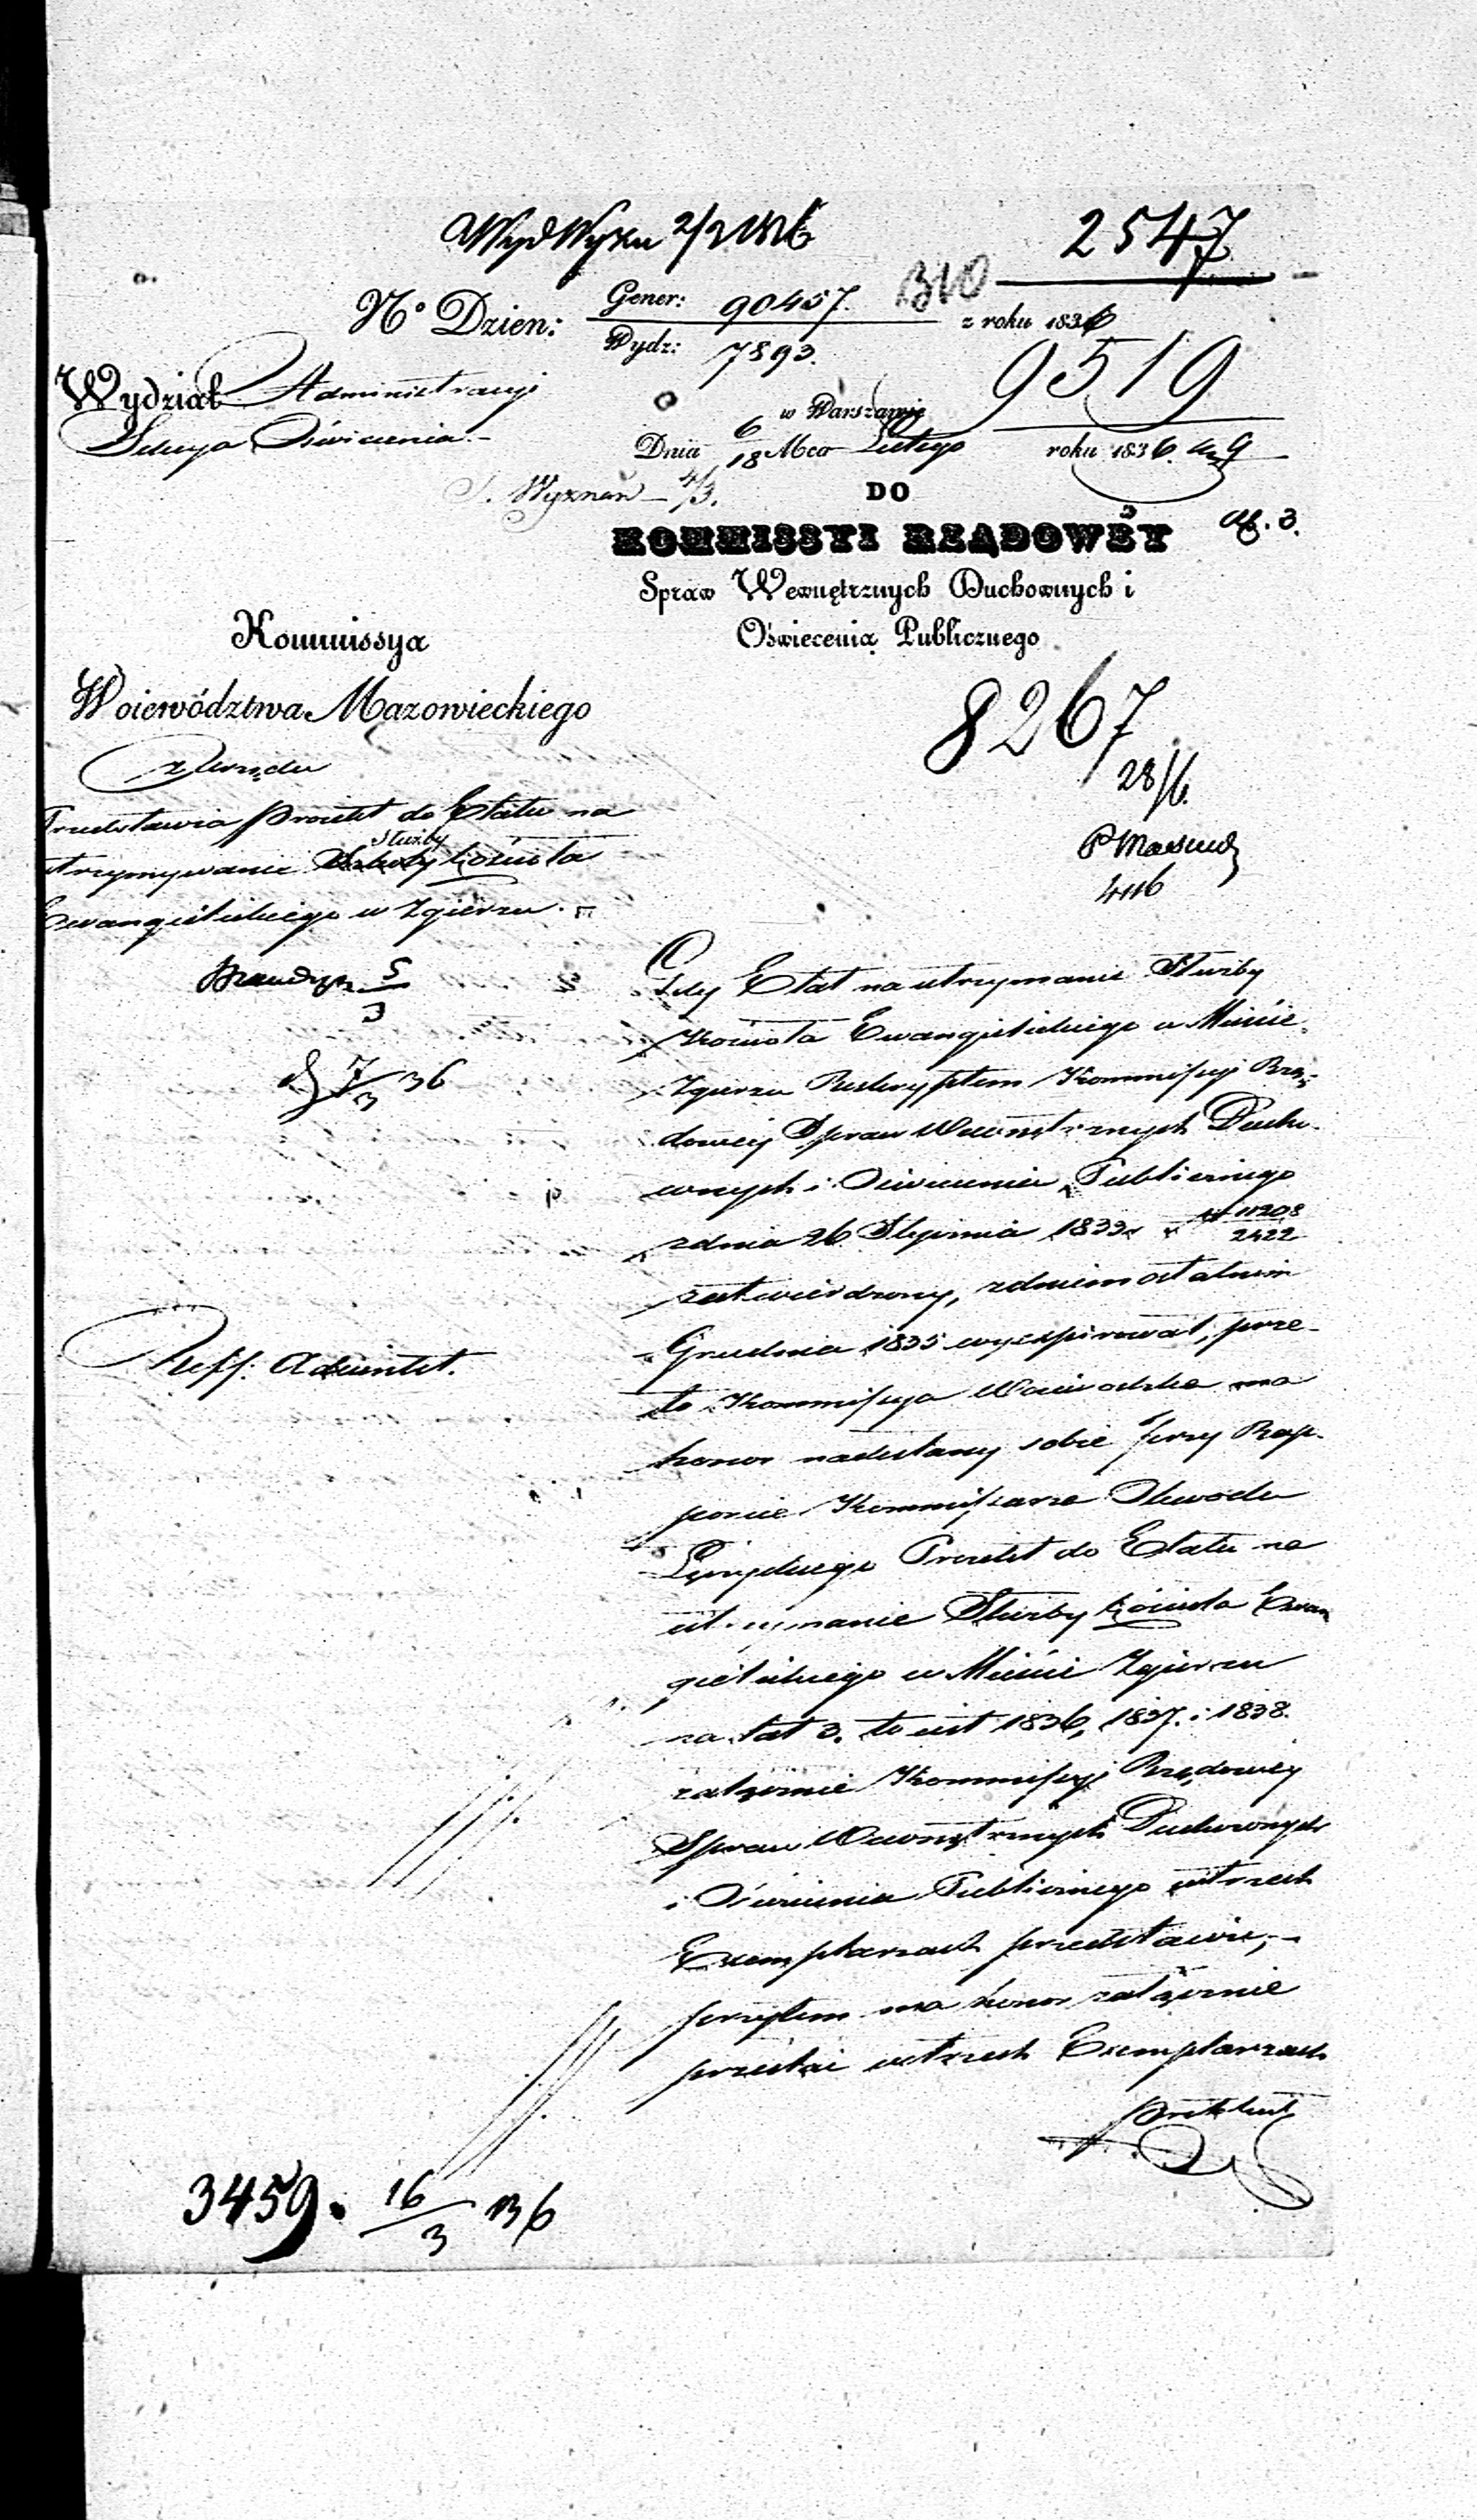 2547
Nº Dzien: Gener: 90457.
Wydz: 7893.
z roku 1836
9519
Wydział Administracyi
Sekcya Oświecenia.-
w Warszawie
Dnia 6/18 Mca Lutego roku 1836.
S. Wyznań - 4/3.
DO
KOMMISSYI RZĄDOWÉY
Spraw Wewnętrznych Duchownych i
Oświecenia Publicznego
Kommissya
Woiewództwa Mazowieckiego
8267
28/6.
z Urzędu
Przedstawia Proiekt do Etatu na
utrzymywanie Służby Kościoła
Ewangielickiego w Zgierzu.
5/3
7/3 36
Reff: Adiunkt.
Gdy Etat na utrzymanie Służby
Kościoła Ewangielickiego w Mieście
Zgierzu Reskryptem Kommissyi Rzą-
dowéy Spraw Wewnętrznych Ducho-
wnych i Oświecenia Publicznego
z dnia 26 Stycznia 1833 r. N 11208/2422
zatwierdzony, z dniem ostatnim
Grudnia 1835 wyexpirował, prze-
to Kommissya Woiewódzka ma
honor nadesłany sobie przy Rap-
porcie Kommissarza Obwodu
Łęczyckiego Proiekt do Etatu na
utrzymanie Służby Kościoła Ewan
gielickiego w Mieście Zgierzu
na lat 3. to iest 1836, 1837. i 1838.
załącznie Kommissyi Rządowéy
Spraw Wewnętrznych Duchownych
i Oświecenia Publicznego w trzech
Exemplarzach przedstawić,-
przytem ma honor załącznie
przesłać w trzech Exemplarzach
3459. 16/3 836